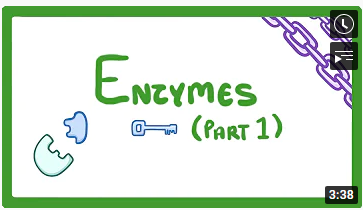 ENZYMES
(PART 1)
3:38